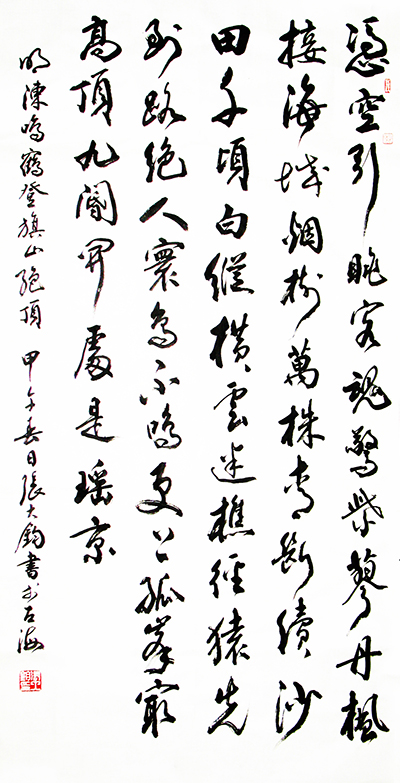 憑空引眺客魂驚紫蓼丹楓
接海城烟樹萬株青斷續沙
田千頃白縱橫雲迷樵徑猿先
到路絕人寰鳥不鳴更上孤峯最
高頂九閽開處是瑶京
明陳鳴鶴登旗山絕頂 甲午春日張大鈞書於左海